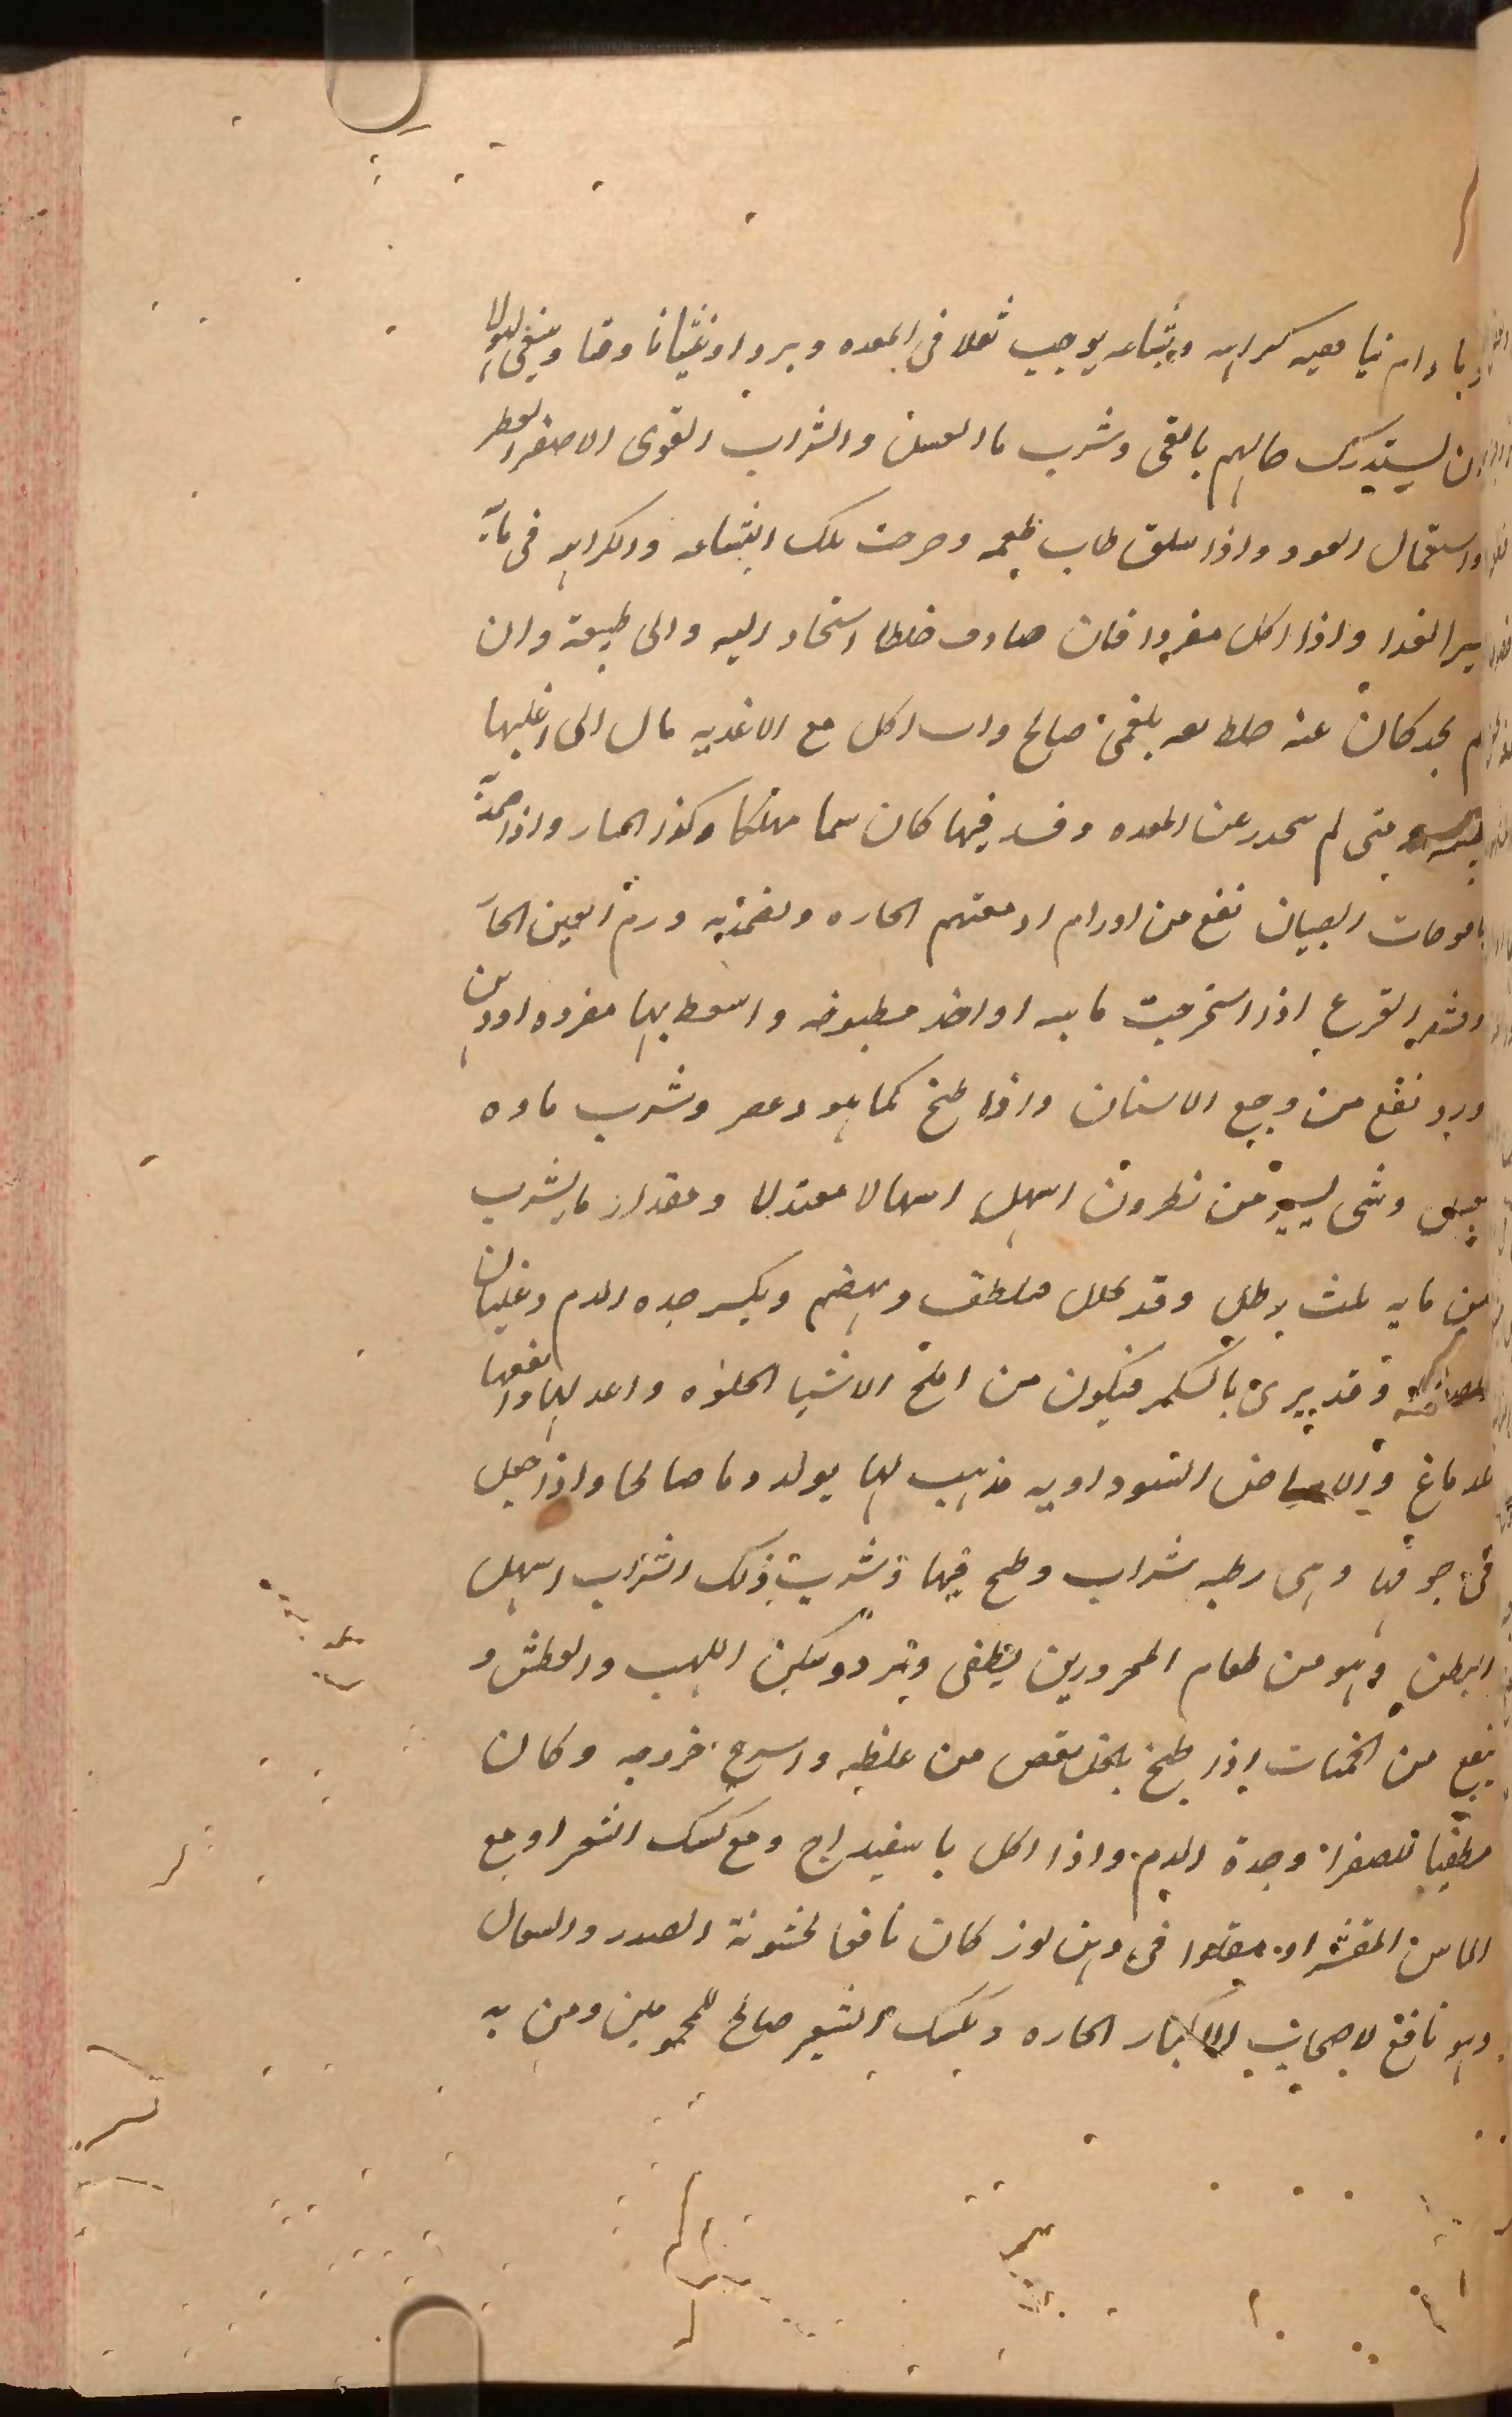 ما دام نيا ففيه كراهه وبشاعه يوجب ثقلا فى المعده وبردا وغثيانا وقيا وينبغى لهولا
ان يستدرك حالهم بالقى وشرب ما العسل والشراب القوى الاصفر العطر
واستعمال العود واذا سلق طاب طعمه وخرجت تلك البشاعه والكراهه فى مائه
يسير الغدا واذا اكل مفردا فان صادف خلطا استحاد اليه والى طبيعة وان
لم يجد كان عنه خلط بلغمى صالح وان اكل مع الاغديه مال الى اغلبها
متى لم ينحدر عن المعده وفسد فيها كان سما مهلكا وكذا الخيار واذا ضمدت
يافوخات الصبيان نفع من اورام ادمغتهم الحاره ويضمد به ورم العين الحار
وقشر القرع اذا استخرجت مايه او اخذ مطبوخه واسعط بها مفرده او دهن
ورد نفع من وجع الاسنان واذا طبخ كما هو وعصر وشرب ماوه
بعسل وشى يسير من نطرون اسهل اسهالا معتدلا ومقدار ما يشرب
من مايه ثلث رطل وقد يحلل ويلطف ويهضم ويكسر حده الدم وغليان
وقد يربى بالسكر فيكون من املح الاشيا الحلوه واعدلها وانفعها
للدماغ والامراض السوداويه مذهب لها يولد دما صالحا واذا جعل
فى جوفها وهى رطبه شراب وطبخ فيها وشربت ذلك الشراب اسهل
البطن وهو من طعام المحرورين يطفى ويبرد ويسكن اللهب والعطش و
ينفع من الحميات اذا طبخ بالخل نقص من غلظه واسرع خروجه وكان
مطفيا للصفرا وحدة الدم واذا اكل باسفيداج ومع كشك الشعير او مع
الماش المقشر او مقلوا فى دهن لوز كان نافعا لخشونة الصدر والسعال
وهو نافع لاصحاب الاكباد الحاره وبكشك الشعير صالح للمحمومين ومن به